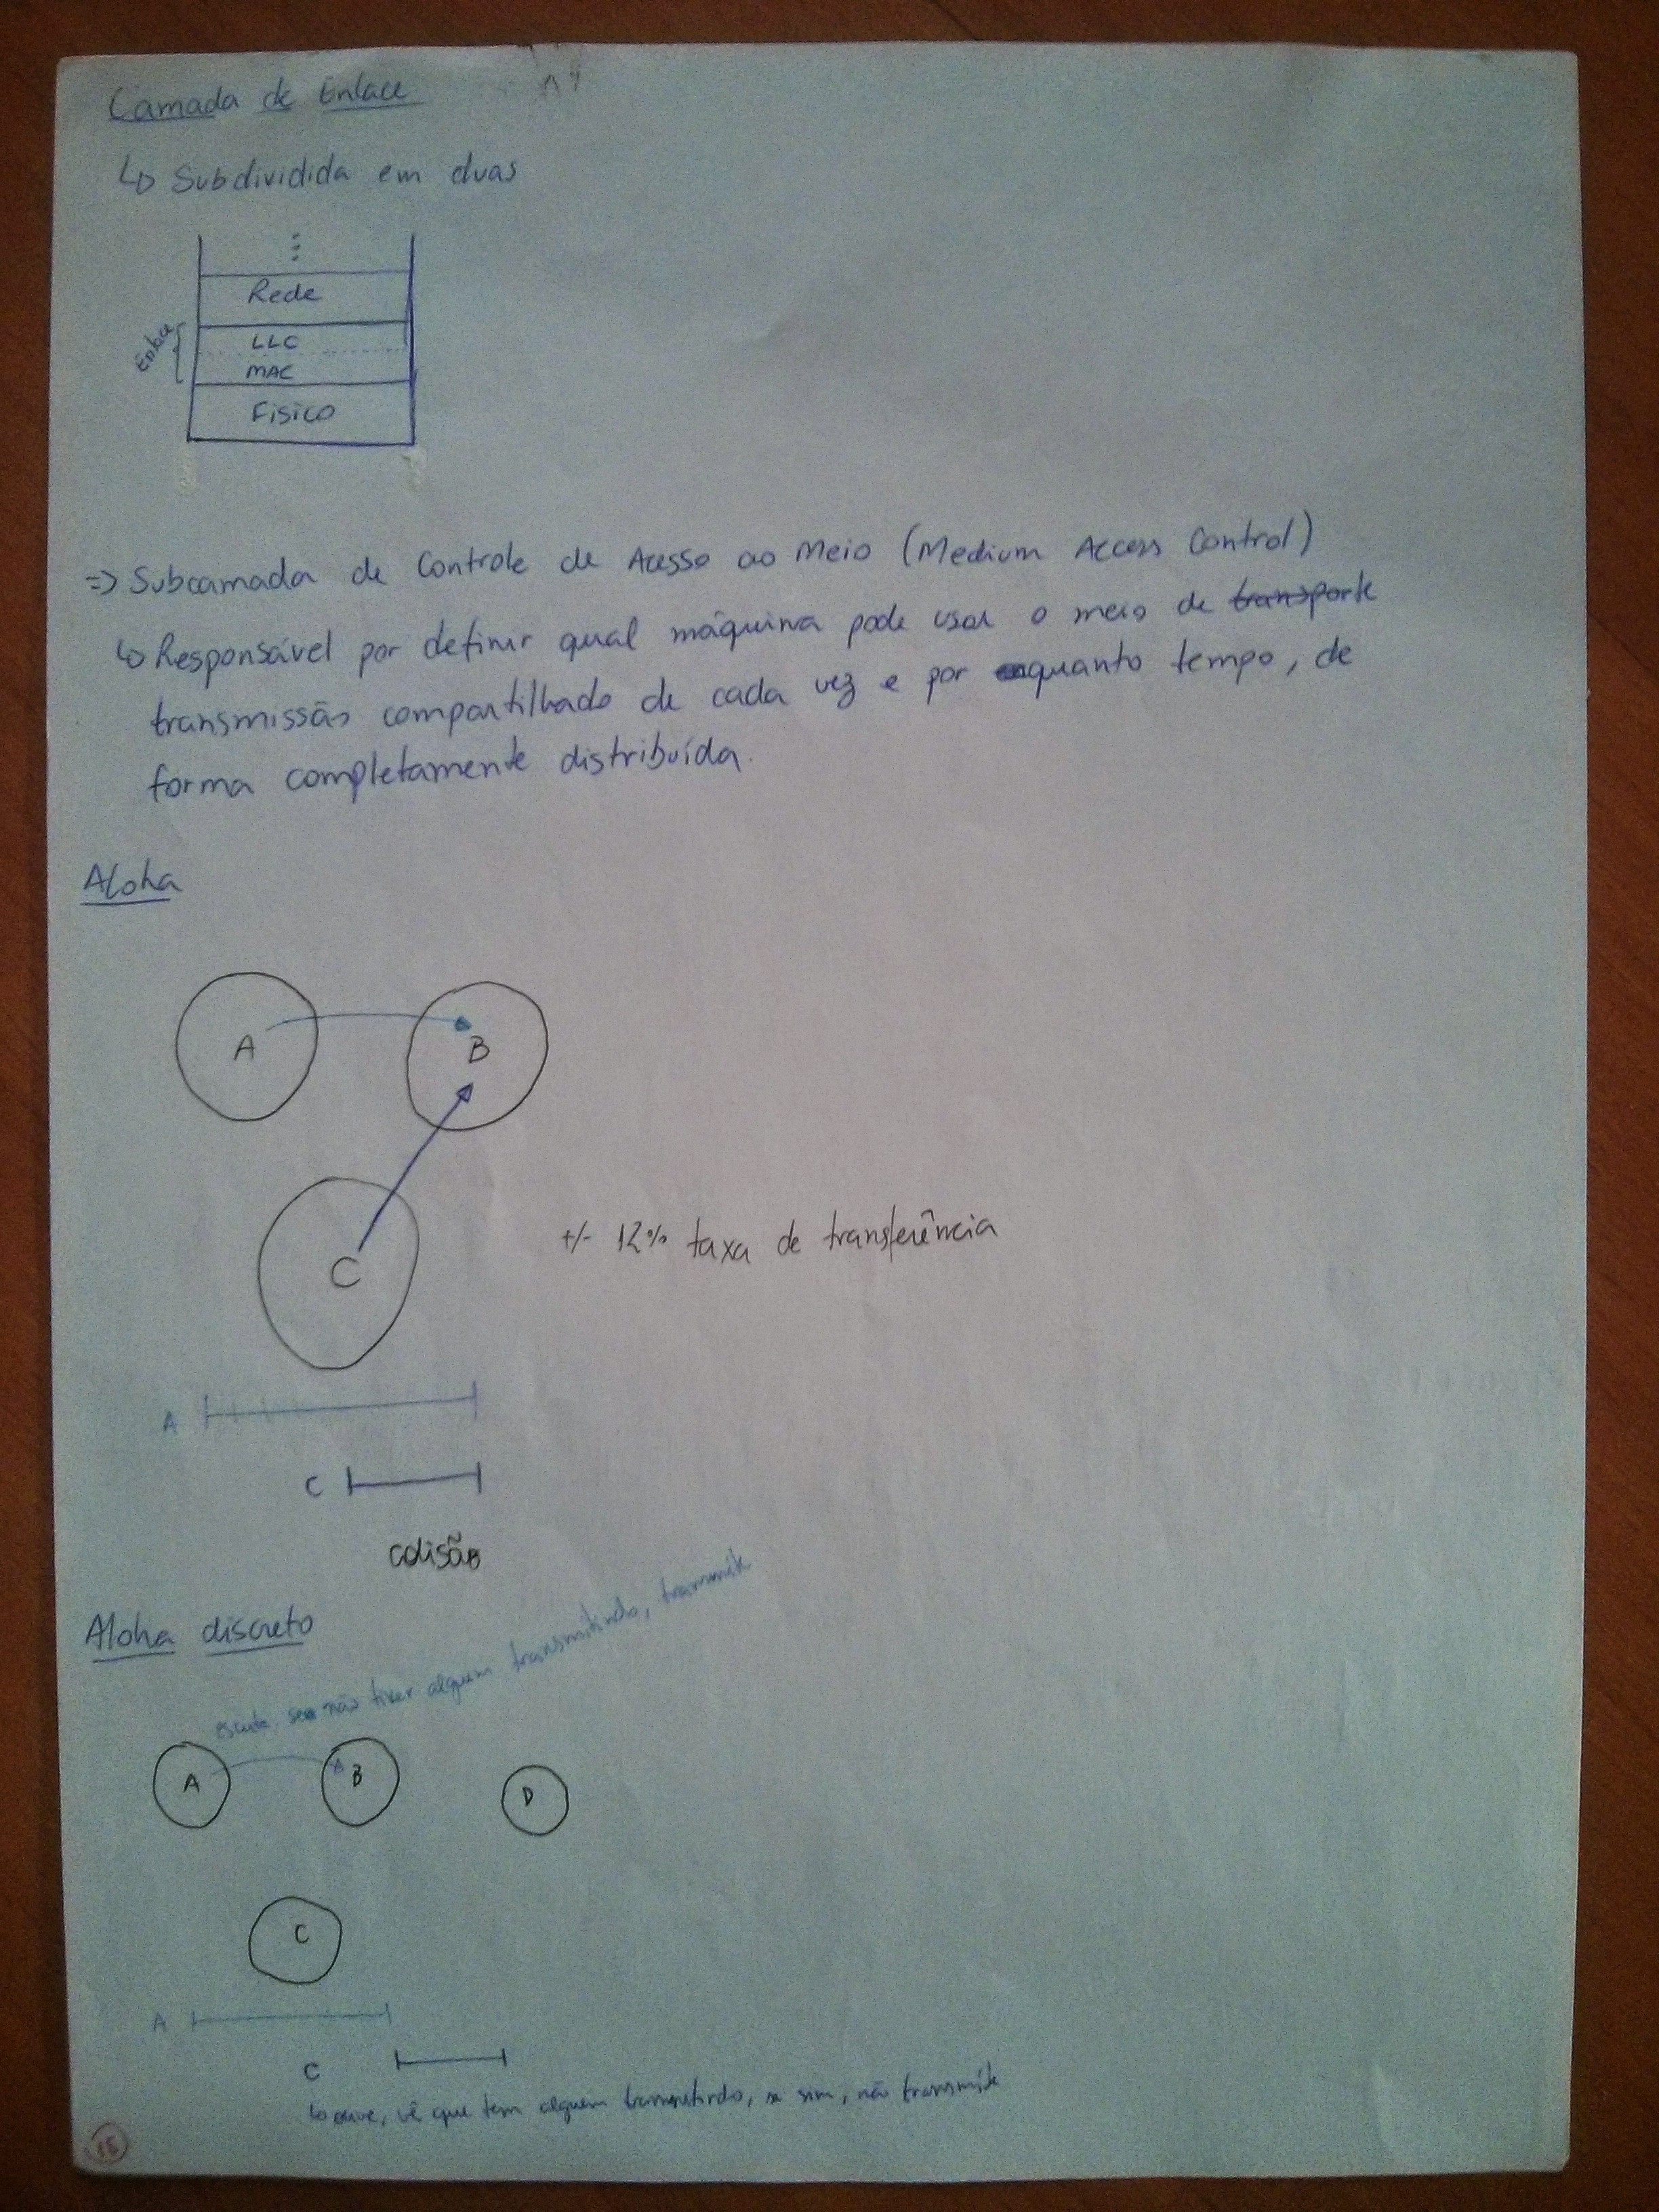 Camada de Enlace
↳ Subdividida em duas
⋮
Rede
Enlace
LLC
MAC
Fisico
=> Subcamada de Controle de Acesso ao Meio (Medium Access Control)
↳ Responsável por definir qual máquina pode usar o meio de transporte
transmissão compartilhado de cada vez e por quanto tempo, de
forma completamente distribuída.
Aloha
A
B
C
+/- 12% taxa de transferência
A
C
colisão
Aloha discreto
escuta se não tiver alguem transmitindo, transmite
A
B
D
C
A
C
↳ ouve, vê que tem alguem transmitindo, se sim, não transmite